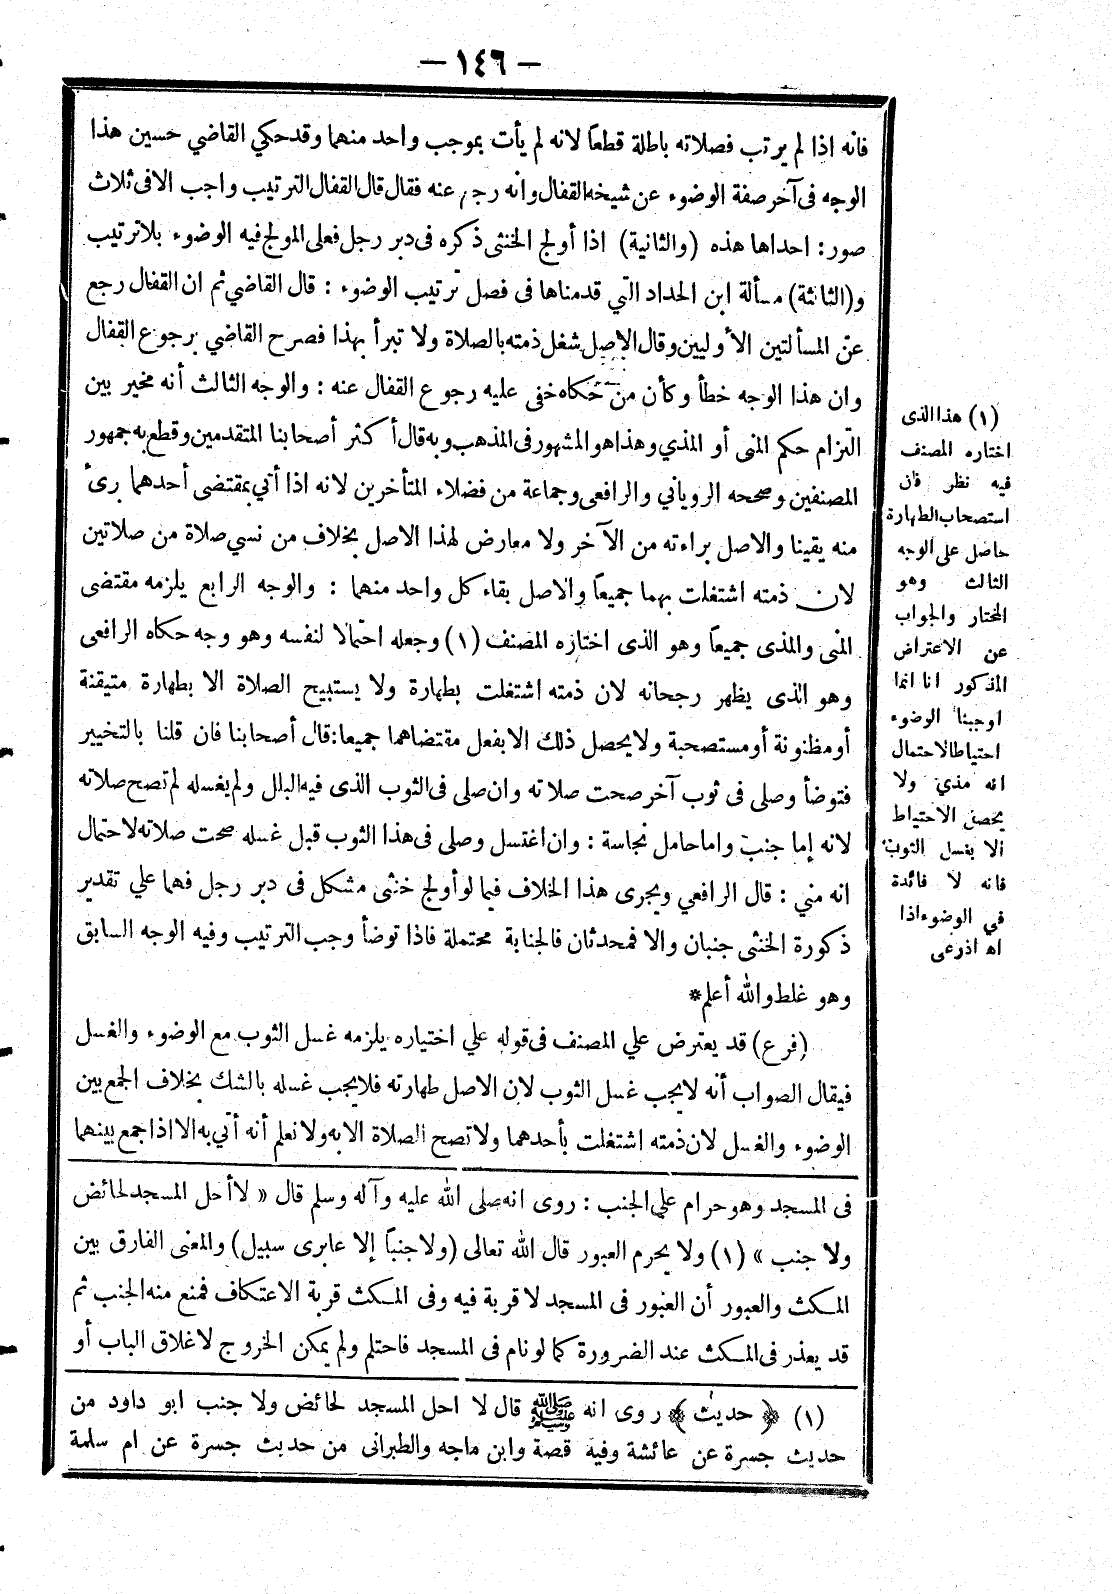 — ١٤٦ —
فانه اذا لم يرتب فصلاته باطلة قطعاً لانه لم يأت بموجب واحد منهما وقد حكي القاضي حسين هذا
الوجه فى آخر صفة الوضوء عن شيخه القفال وانه رجع عنه فقال قال القفال الترتيب واجب الا فى ثلاث
صور : احداها هذه (والثانية) اذا أولج الخنثى ذكره فى دبر رجل فعلى المولج فيه الوضوء بلا ترتيب
و(الثالثة) مسألة ابن الحداد التي قدمناها فى فصل ترتيب الوضوء : قال القاضي ثم ان القفال رجع
عن المسألتين الأوليين وقال الاصل شغل ذمته بالصلاة ولا تبرأ بهذا فصرح القاضي برجوع القفال
وان هذا الوجه خطأ وكأن من حكاه خفى عليه رجوع القفال عنه : والوجه الثالث أنه مخير بين
التزام حكم المنى أو المذي وهذا هو المشهور فى المذهب وبه قال أكثر أصحابنا المتقدمين وقطع به جمهور
المصنفين وصححه الروياني والرافعى وجماعة من فضلاء المتأخرين لانه اذا أتي بمقتضى أحدهما برئ
منه يقينا والاصل براءته من الآخر ولا معارض لهذا الاصل بخلاف من نسي صلاة من صلاتين
لان ذمته اشتغلت بهما جميعاً والاصل بقاء كل واحد منهما : والوجه الرابع يلزمه مقتضى
المنى والمذى جميعاً وهو الذى اختاره المصنف (١) وجعله احتمالا لنفسه وهو وجه حكاه الرافعى
وهو الذى يظهر رجحانه لان ذمته اشتغلت بطهارة ولا يستبيح الصلاة الا بطهارة متيقنة
أو مظنونة أو مستصحبة ولا يحصل ذلك الا بفعل مقتضاهما جميعا : قال أصحابنا فان قلنا بالتخيير
فتوضأ وصلى فى ثوب آخر صحت صلاته وان صلى فى الثوب الذى فيه البلل ولم يغسله لم تصح صلاته
لانه إما جنب واما حامل نجاسة : وان اغتسل وصلى فى هذا الثوب قبل غسله صحت صلاته لاحتمال
انه مني : قال الرافعي ويجرى هذا الخلاف فيما لو أولج خنثى مشكل فى دبر رجل فهما علي تقدير
ذكورة الخنثى جنبان والا فمحدثان فالجنابة محتملة فاذا توضأ وجب الترتيب وفيه الوجه السابق
وهو غلط والله أعلم*
(فرع) قد يعترض علي المصنف فى قوله علي اختياره يلزمه غسل الثوب مع الوضوء والغسل
فيقال الصواب أنه لا يجب غسل الثوب لان الاصل طهارته فلا يجب غسله بالشك بخلاف الجمع بين
الوضوء والغسل لان ذمته اشتغلت بأحدهما ولا تصح الصلاة الا به ولا نعلم أنه أتي به الا اذا جمع بينهما
(١) هذا الذى
اختاره المصنف
فيه نظر فان
استصحاب الطهارة
حاصل على الوجه
الثالث وهو
المختار والجواب
عن الاعتراض
المذكور انا انما
اوجبنا الوضوء
احتياطا لاحتمال
انه مذي ولا
يحصل الاحتياط
الا بغسل الثوب
فانه لا فائدة
في الوضوء اذا
اه اذرعى
فى المسجد وهو حرام علي الجنب : روى انه صلى الله عليه وآله وسلم قال « لا أحل المسجد لحائض
ولا جنب » (١) ولا يحرم العبور قال الله تعالى (ولا جنباً إلا عابرى سبيل) والمعنى الفارق بين
المكث والعبور أن العبور فى المسجد لا قربة فيه وفى المكث قربة الاعتكاف فمنع منه الجنب ثم
قد يعذر فى المكث عند الضرورة كما لو نام فى المسجد فاحتلم ولم يمكن الخروج لاغلاق الباب أو
(١) ﴿ حديث ﴾ روى انه ﷺ قال لا احل المسجد لحائض ولا جنب ابو داود من
حديث جسرة عن عائشة وفيه قصة وابن ماجه والطبرانى من حديث جسرة عن ام سلمة